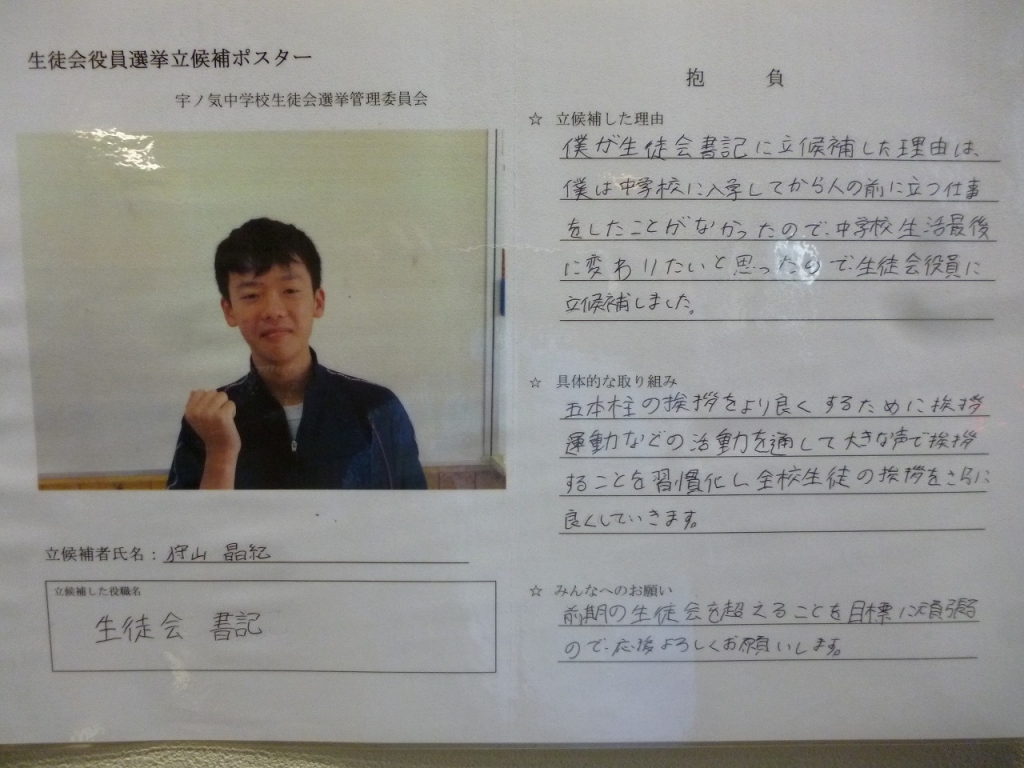 生徒会役員選挙立候補ポスター
宇ノ気中学校生徒会選挙管理委員会
立候補者氏名：狩山 晶紀
立候補した役職名
生徒会 書記
抱 負
☆ 立候補した理由
僕が生徒会書記に立候補した理由は、
僕は中学校に入学してから人の前に立つ仕事
をしたことがなかったので、中学校生活最後
に変わりたいと思ったので、生徒会役員に
立候補しました。
☆ 具体的な取り組み
五本柱の挨拶をより良くするために挨拶
運動などの活動を通して大きな声で挨拶
することを習慣化し全校生徒の挨拶をさらに
良くしていきます。
☆ みんなへのお願い
前期の生徒会を超えることを目標に頑張る
ので、応援よろしくお願いします。